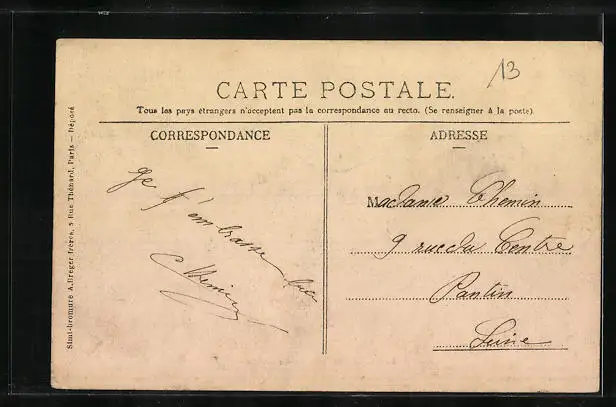 13
CARTE POSTALE.
Tous les pays étrangers n'acceptent pas la correspondance au recto. (Se renseigner à la poste).
CORRESPONDANCE
ADRESSE
Je t'embrasse
Chemin
Madame Chemin
9 rue du Centre
Pantin
Seine
Simi-bromure A. Breger frères, 5 Rue Thénard, Paris — Déposé